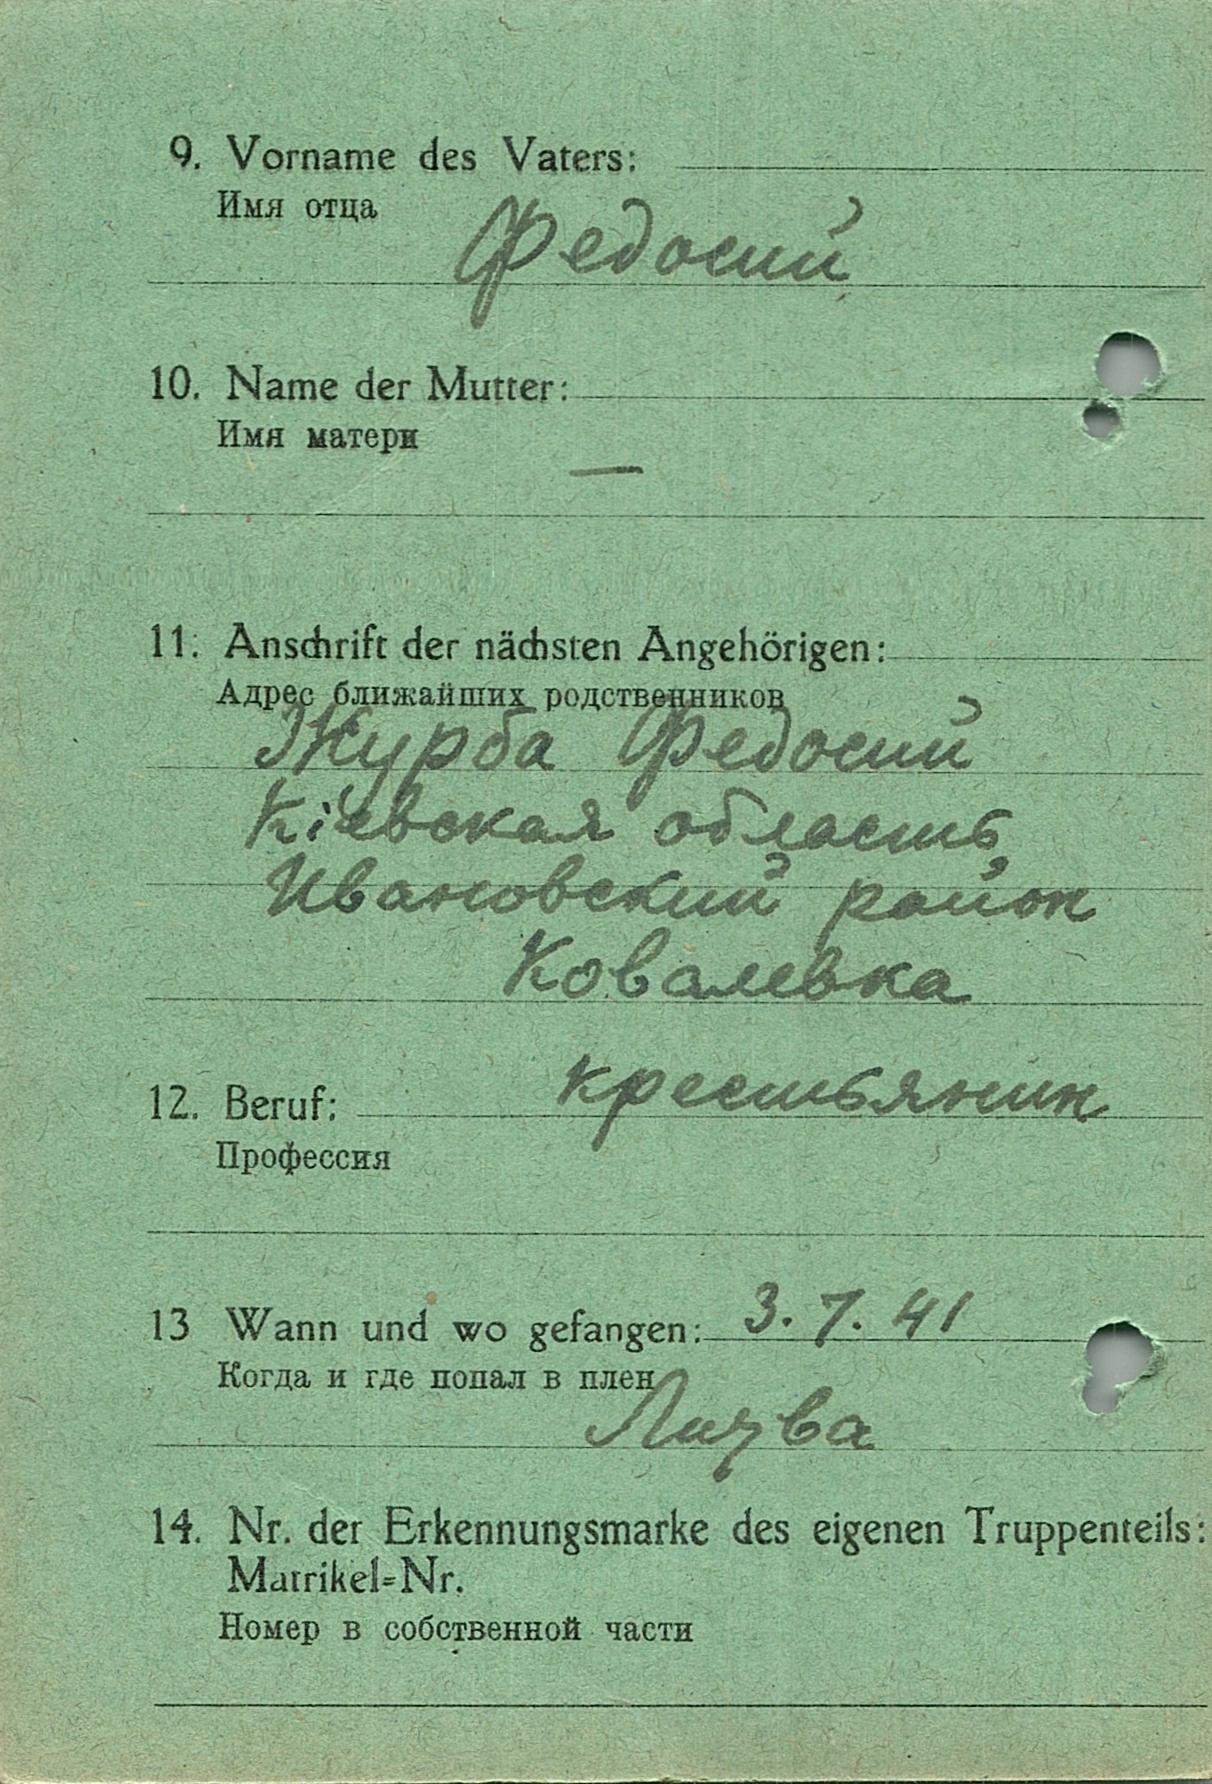 9. Vorname des Vaters:
Имя отца
Федосий
10. Name der Mutter:
Имя матери
—
11. Anschrift der nächsten Angehörigen:
Адрес ближайших родственников
Журба Федосий
Кіевская область
Ивановский район
Ковалевка
крестьянин
12. Beruf:
Профессия
13 Wann und wo gefangen: 3. 7. 41
Когда и где попал в плен
14. Nr. der Erkennungsmarke des eigenen Truppenteils:
Matrikel=Nr.
Номер в собственной части